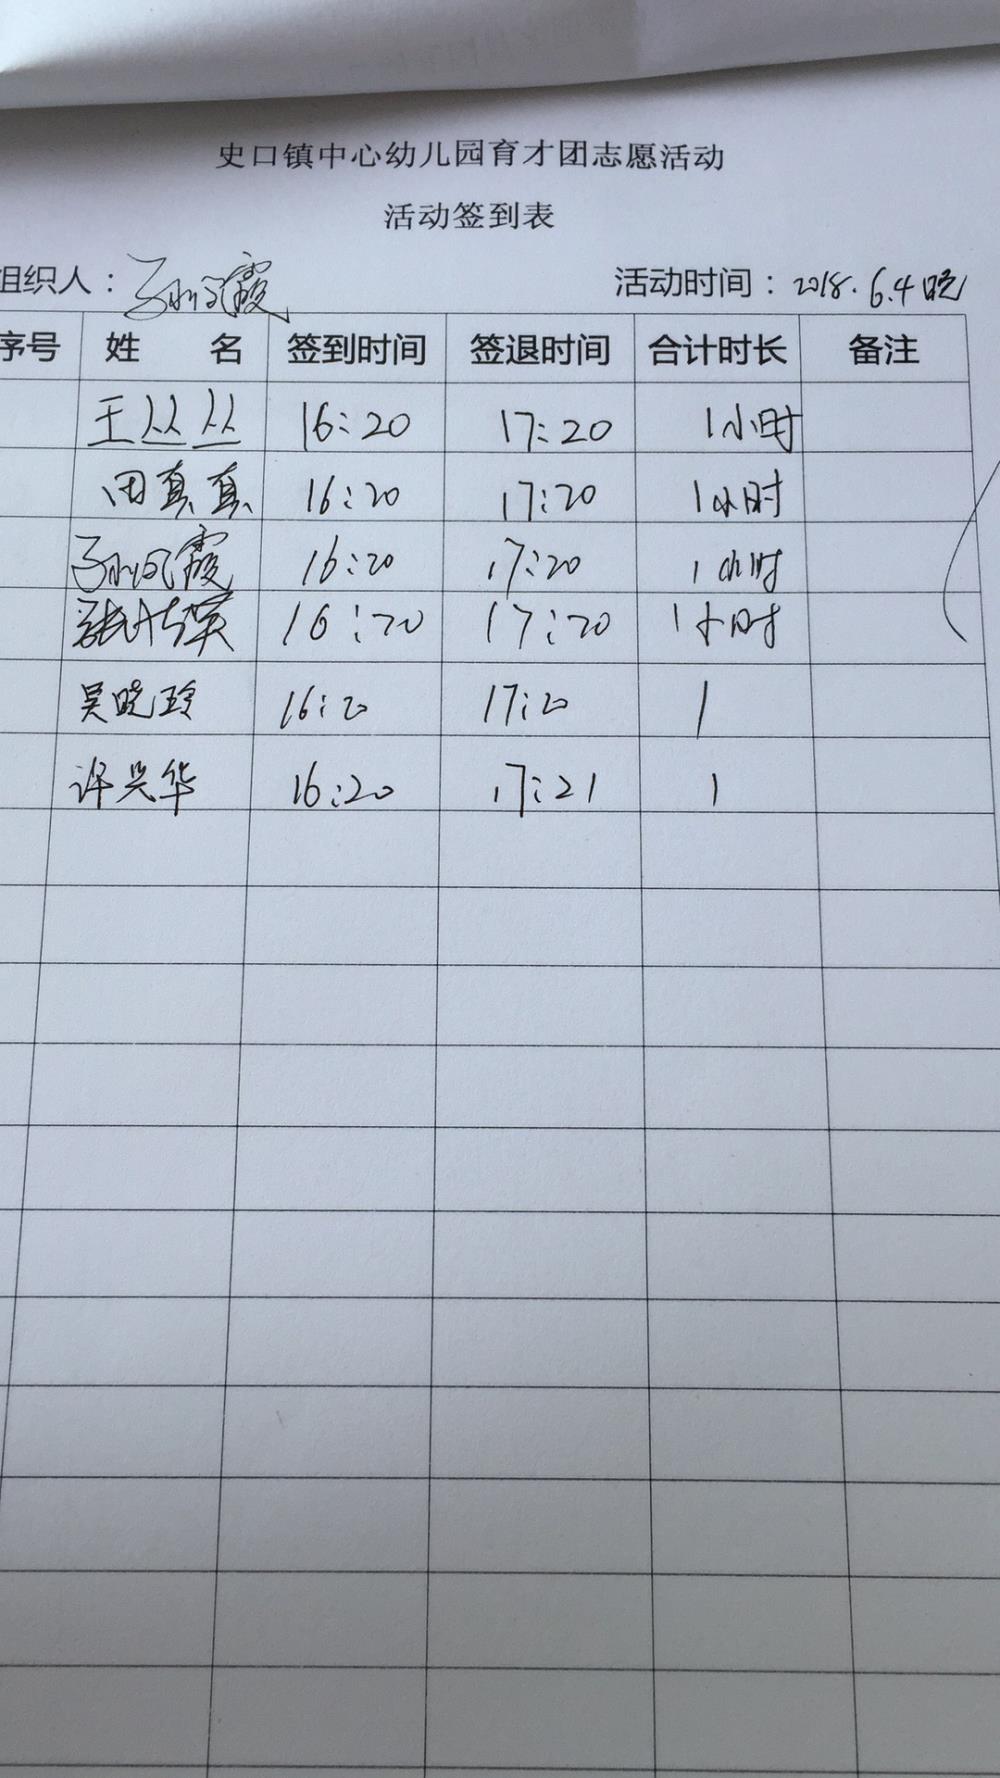 史口镇中心幼儿园育才团志愿活动
活动签到表
组织人：孙凤霞 活动时间：2018.6.4晚
序号 姓 名 签到时间 签退时间 合计时长 备注
王丛丛 16:20 17:20 1小时
田真真 16:20 17:20 1小时
孙凤霞 16:20 17:20 1小时
张 16:20 17:20 1小时
吴晓玲 16:20 17:20 1
许兴华 16:20 17:21 1